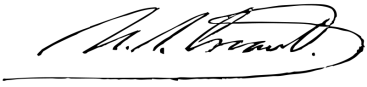 U. S. Grant.